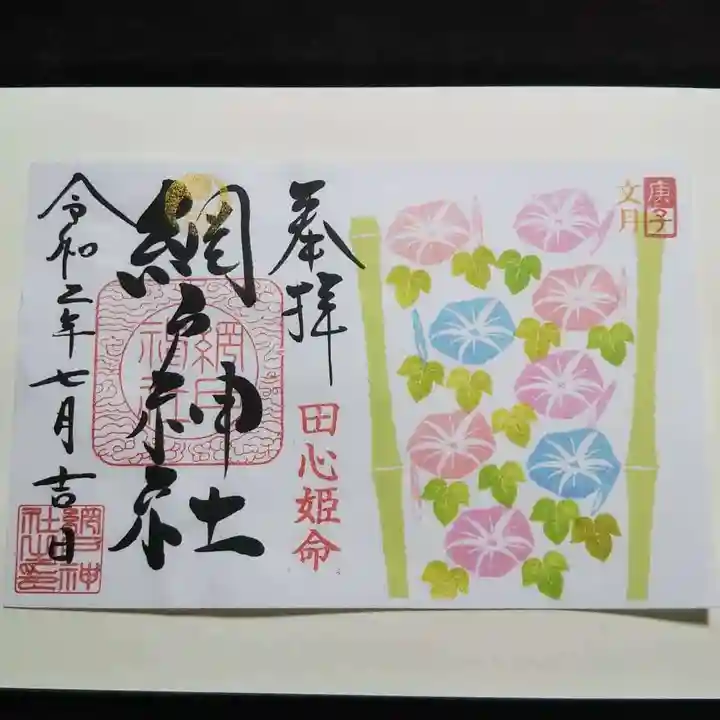 庚子
文月
奉拝
田心姫命
網戸神社
網戸
神社
令和二年七月吉日
網戸神
社之印